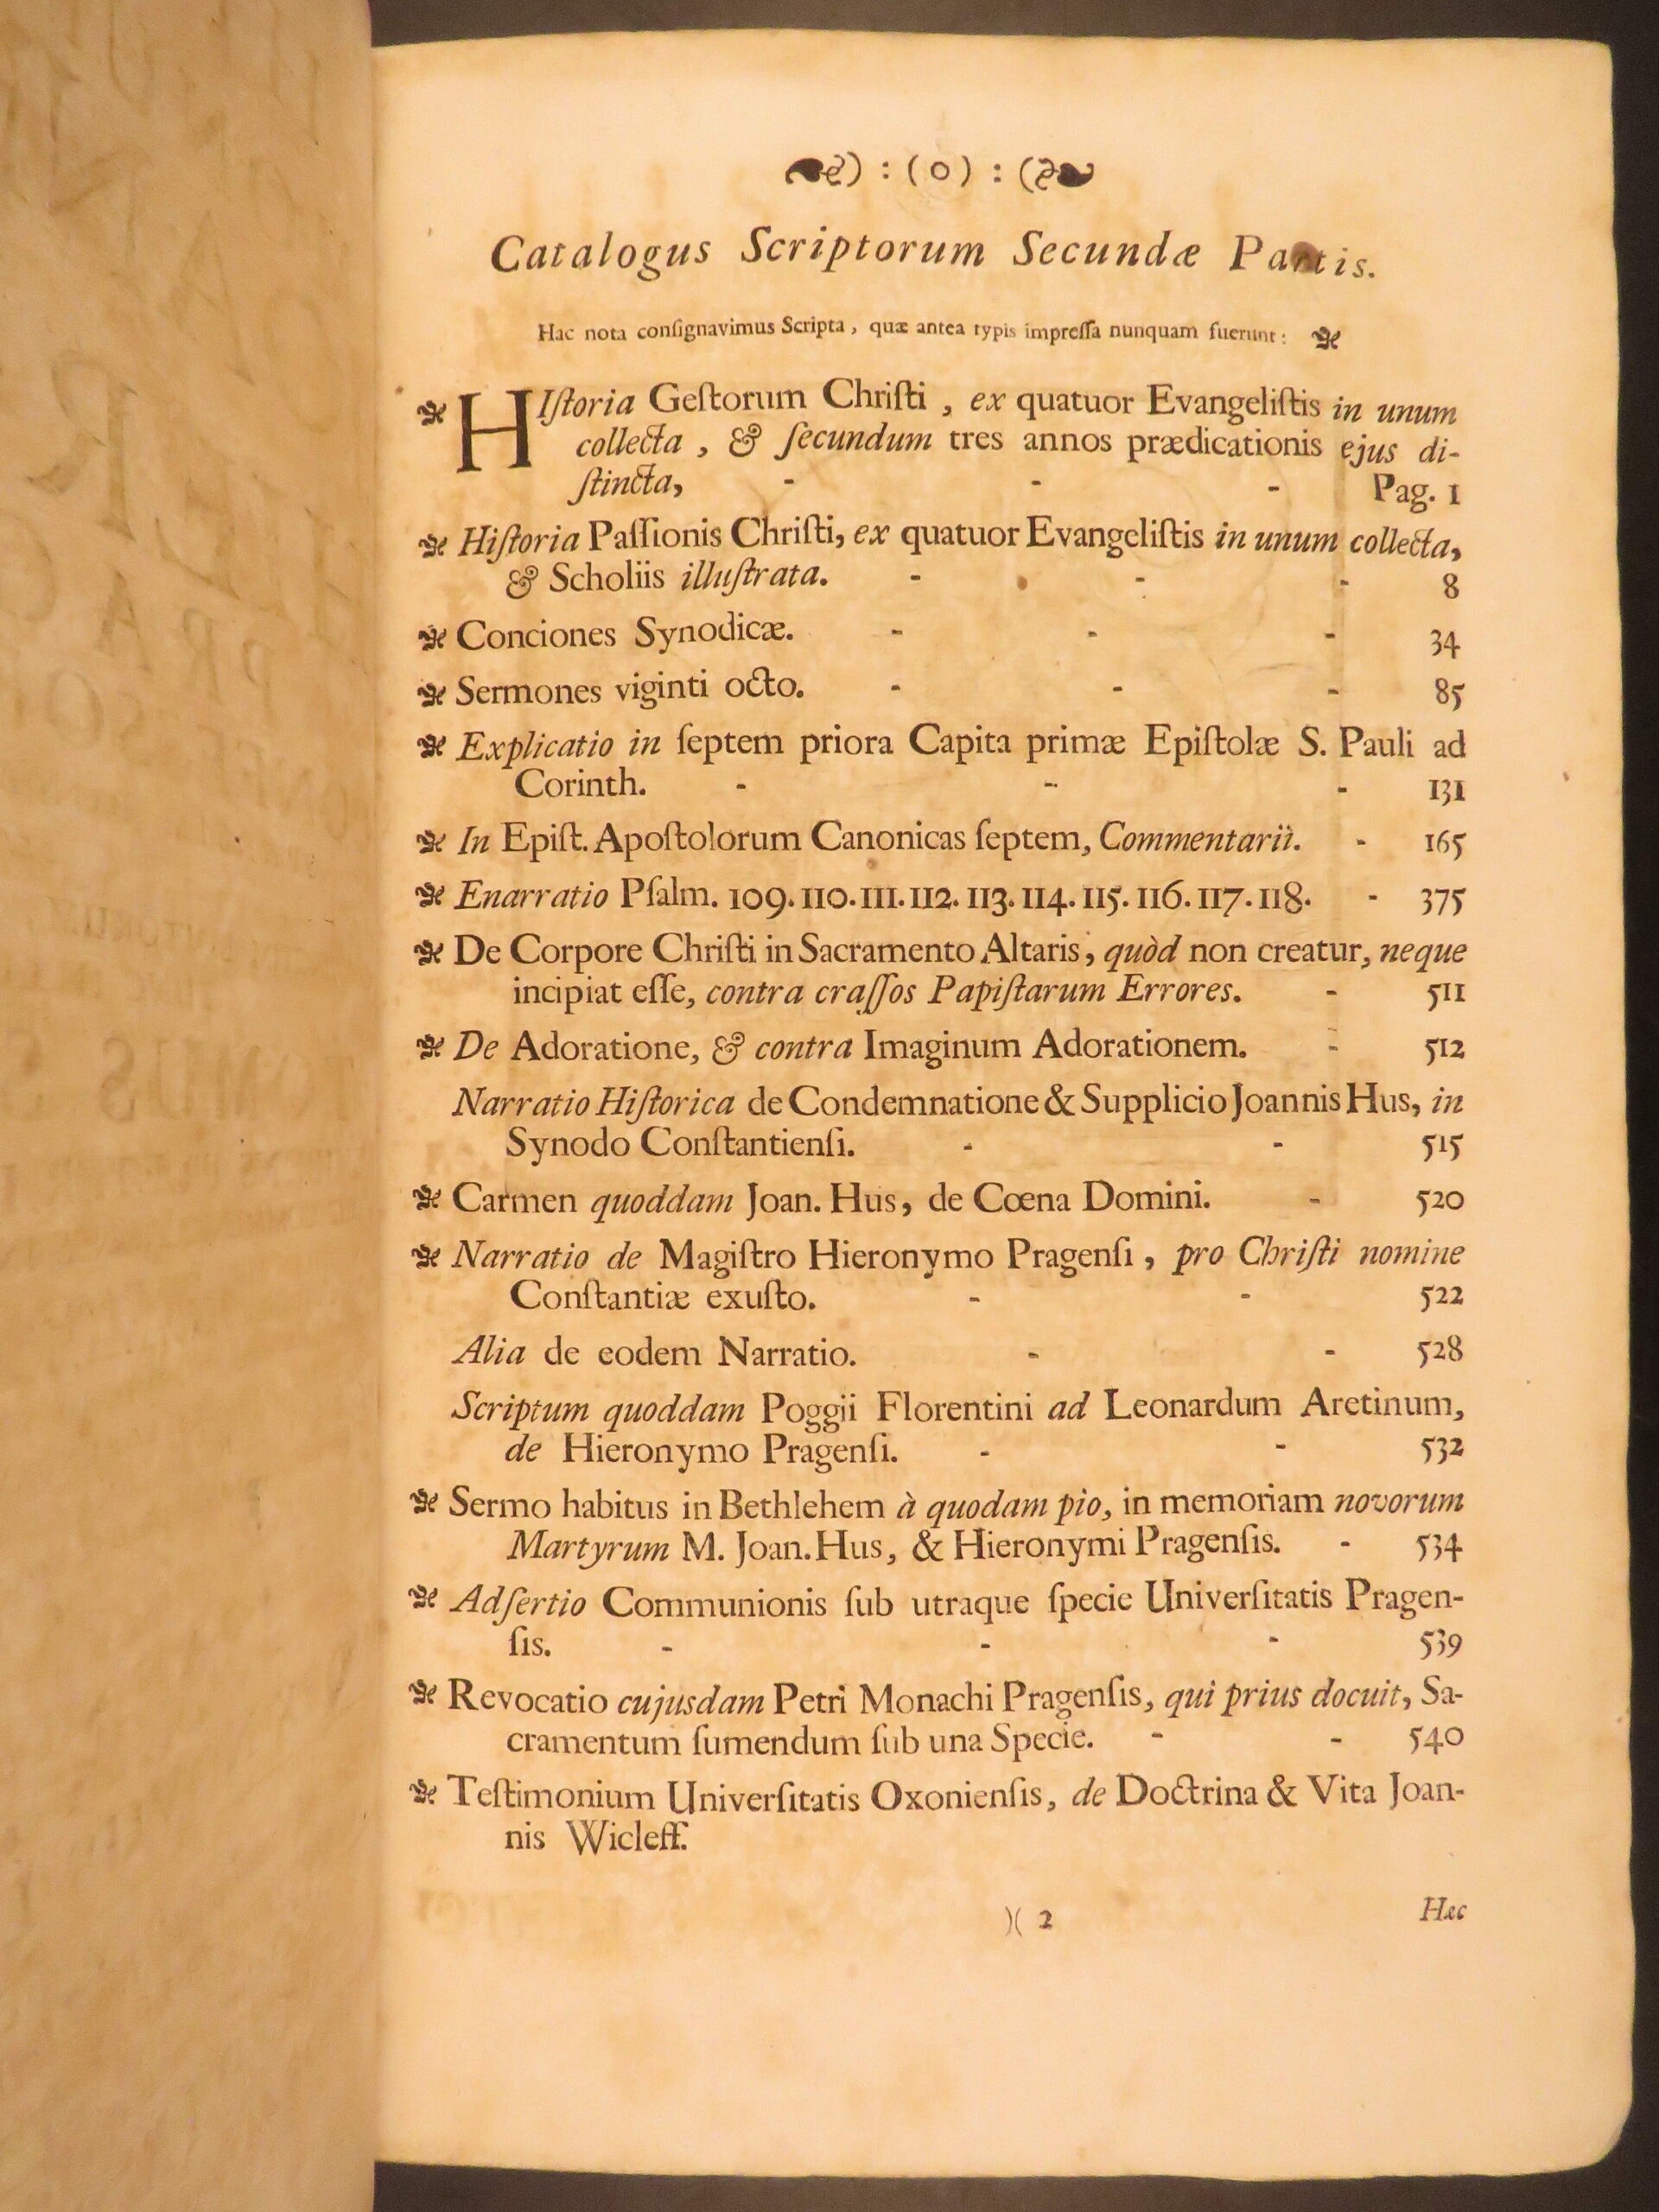 ❧) : ( o ) : (❧
Catalogus Scriptorum Secundæ Partis.
Hac nota conſignavimus Scripta, quæ antea typis impreſſa nunquam fuerunt: ❧
❧ HIſtoria Geſtorum Chriſti, ex quatuor Evangeliſtis in unum
collecta, & ſecundum tres annos prædicationis ejus di-
ſtincta, - - - Pag. 1
❧ Hiſtoria Paſſionis Chriſti, ex quatuor Evangeliſtis in unum collecta,
& Scholiis illuſtrata. - - - 8
❧ Conciones Synodicæ. - - - 34
❧ Sermones viginti octo. - - - 85
❧ Explicatio in ſeptem priora Capita primæ Epiſtolæ S. Pauli ad
Corinth. - - - 131
❧ In Epiſt. Apoſtolorum Canonicas ſeptem, Commentarii. - 165
❧ Enarratio Pſalm. 109. 110. 111. 112. 113. 114. 115. 116. 117. 118. - 375
❧ De Corpore Chriſti in Sacramento Altaris, quòd non creatur, neque
incipiat eſſe, contra craſſos Papiſtarum Errores. - 511
❧ De Adoratione, & contra Imaginum Adorationem. - 512
Narratio Hiſtorica de Condemnatione & Supplicio Joannis Hus, in
Synodo Conſtantienſi. - - 515
❧ Carmen quoddam Joan. Hus, de Cœna Domini. - 520
❧ Narratio de Magiſtro Hieronymo Pragenſi, pro Chriſti nomine
Conſtantiæ exuſto. - - 522
Alia de eodem Narratio. - - 528
Scriptum quoddam Poggii Florentini ad Leonardum Aretinum,
de Hieronymo Pragenſi. - - 532
❧ Sermo habitus in Bethlehem à quodam pio, in memoriam novorum
Martyrum M. Joan. Hus, & Hieronymi Pragenſis. - 534
❧ Adſertio Communionis ſub utraque ſpecie Univerſitatis Pragen-
ſis. - - - 539
❧ Revocatio cujusdam Petri Monachi Pragenſis, qui prius docuit, Sa-
cramentum ſumendum ſub una Specie. - - 540
❧ Teſtimonium Univerſitatis Oxonienſis, de Doctrina & Vita Joan-
nis Wicleff.
)( 2 Hæc